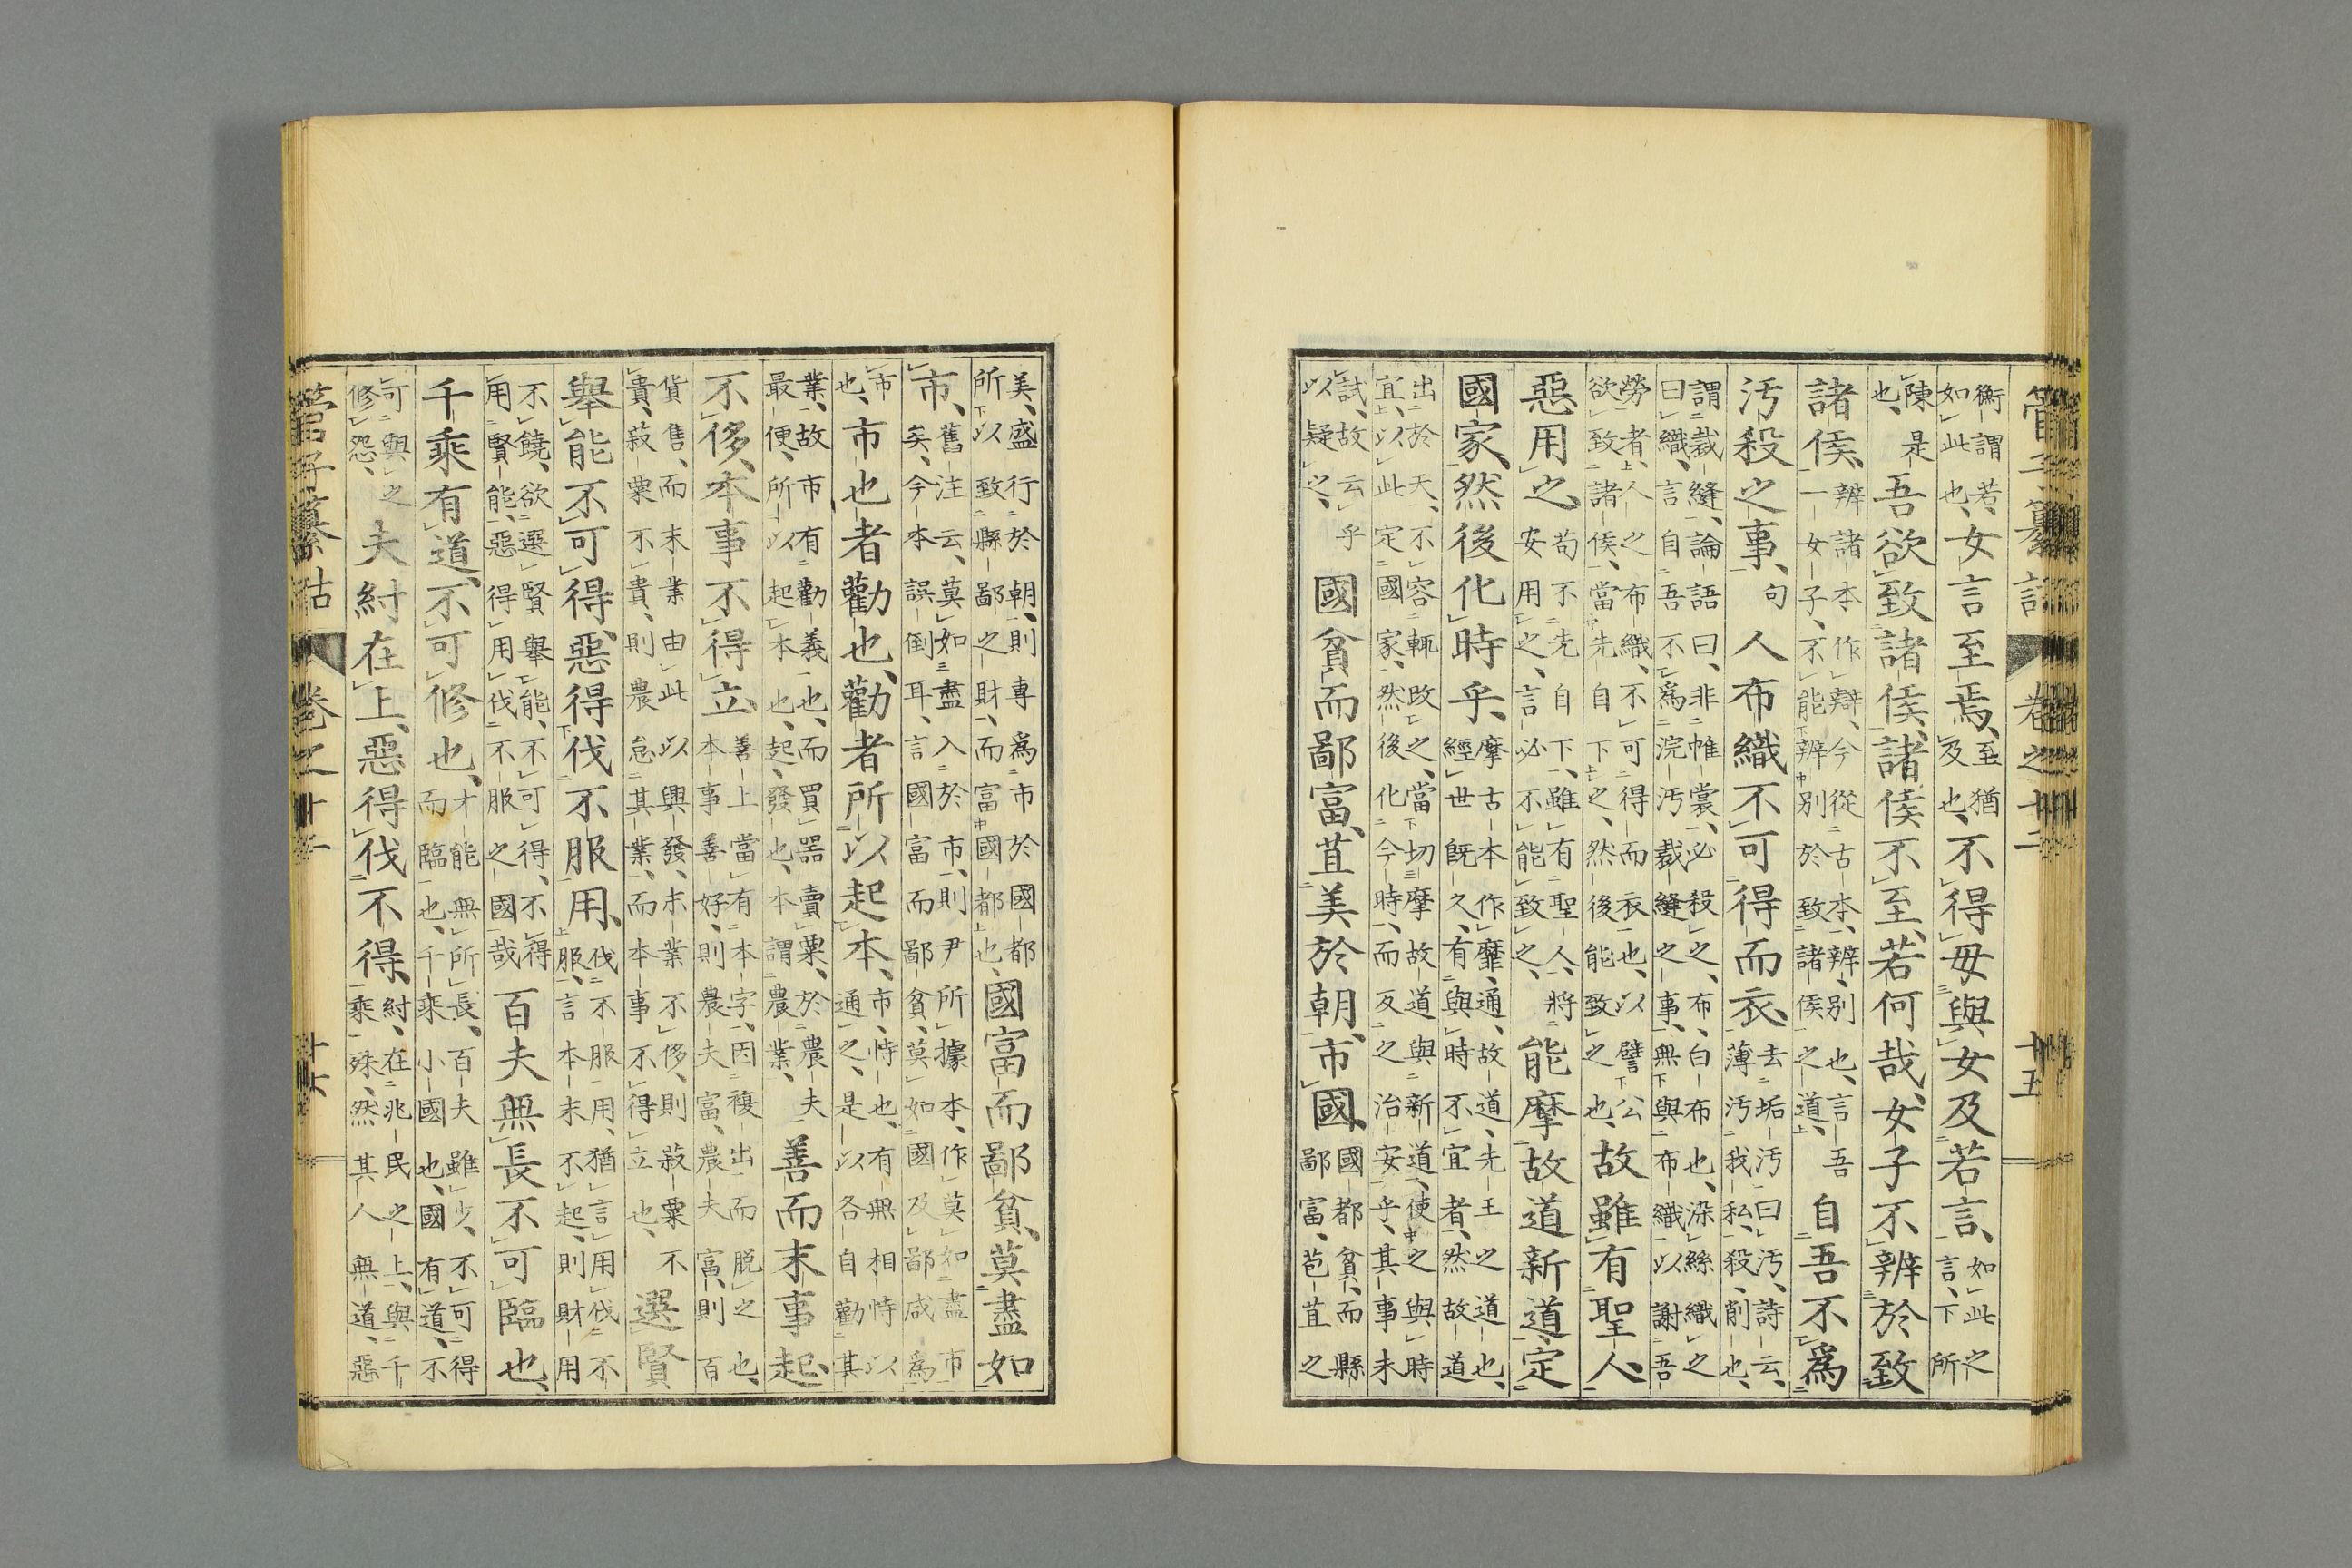 管子纂詁 卷之十二 十五
衡謂若、如此也、女言至焉、至猶及也、不得毋與女及若言、如此之言、下所
陳是也、吾欲致諸侯、諸侯不至、若何哉、女子不辨於致
諸侯、辨諸本作辯、今從古本、辨、別也、言吾一女子、不能辨別於致諸侯之道、自吾不爲
汚殺之事、句人布織不可得而衣、去垢汚曰汚、詩云、薄汚我私、殺、削也、
謂裁縫、論語曰、非帷裳、必殺之、布、白布也、染絲織之曰織、言自吾不爲浣汚裁縫之事、無與布織以謝吾
勞者、人之布織、不可得而衣也、以譬公欲致諸侯、當先自下之、然後能致之也、故雖有聖人、
惡用之、苟不先自下、雖有聖人、將安用之、言必不能致之、能摩故道新道定
國家、然後化時乎、摩古本作靡、通、故道、先王之道也、經世旣久、有與時不宜者、然故道
出於天、不容輒改之、當切摩故道與新道、使之與時宜、以此定國家、然後化今時、而反之治安乎、其事未
試、故云乎以疑之、國貧而鄙富、苴美於朝、市國、國都貧、而縣鄙富、苞苴之
美、盛行於朝、則專爲市於國都所以致縣鄙之財、而富國都也、國富而鄙貧、莫盡如
市、舊注云、莫如盡入於市、則尹所據本、作莫如盡市矣、今本誤倒耳、言國富而鄙貧、莫如國及鄙咸爲
市也、市也者勸也、勸者所以起本、市、恃也、有無相恃以通之、是以各自勸其
業、故市有勸義也、而買器賣粟、於農夫最便、所以起本也、起、發也、本謂農業、善而末事起、
不侈、本事不得立、善上當有本字、因複出而脫之也、本事善好、則農夫富、農夫富、則百
貨售、而末業由此以興發、末業不侈、則菽粟不貴、菽粟不貴、則農怠其業、而本事不得立也、選賢
舉能不可得、惡得伐不服用、伐不服用、猶言用伐不服、言本末不起、則財用
不饒、欲選賢舉能、不可得、不得用賢能、惡得用伐不服之國哉百夫無長不可臨也、
千乘有道、不可修也、才能無所長、百夫雖少、不可得而臨也、千乘小國也、國有道、不
可與之修怨、夫紂在上、惡得伐不得、紂、在兆民之上、與千乘殊、然其人無道、惡
管子纂詁 卷之十二 十六